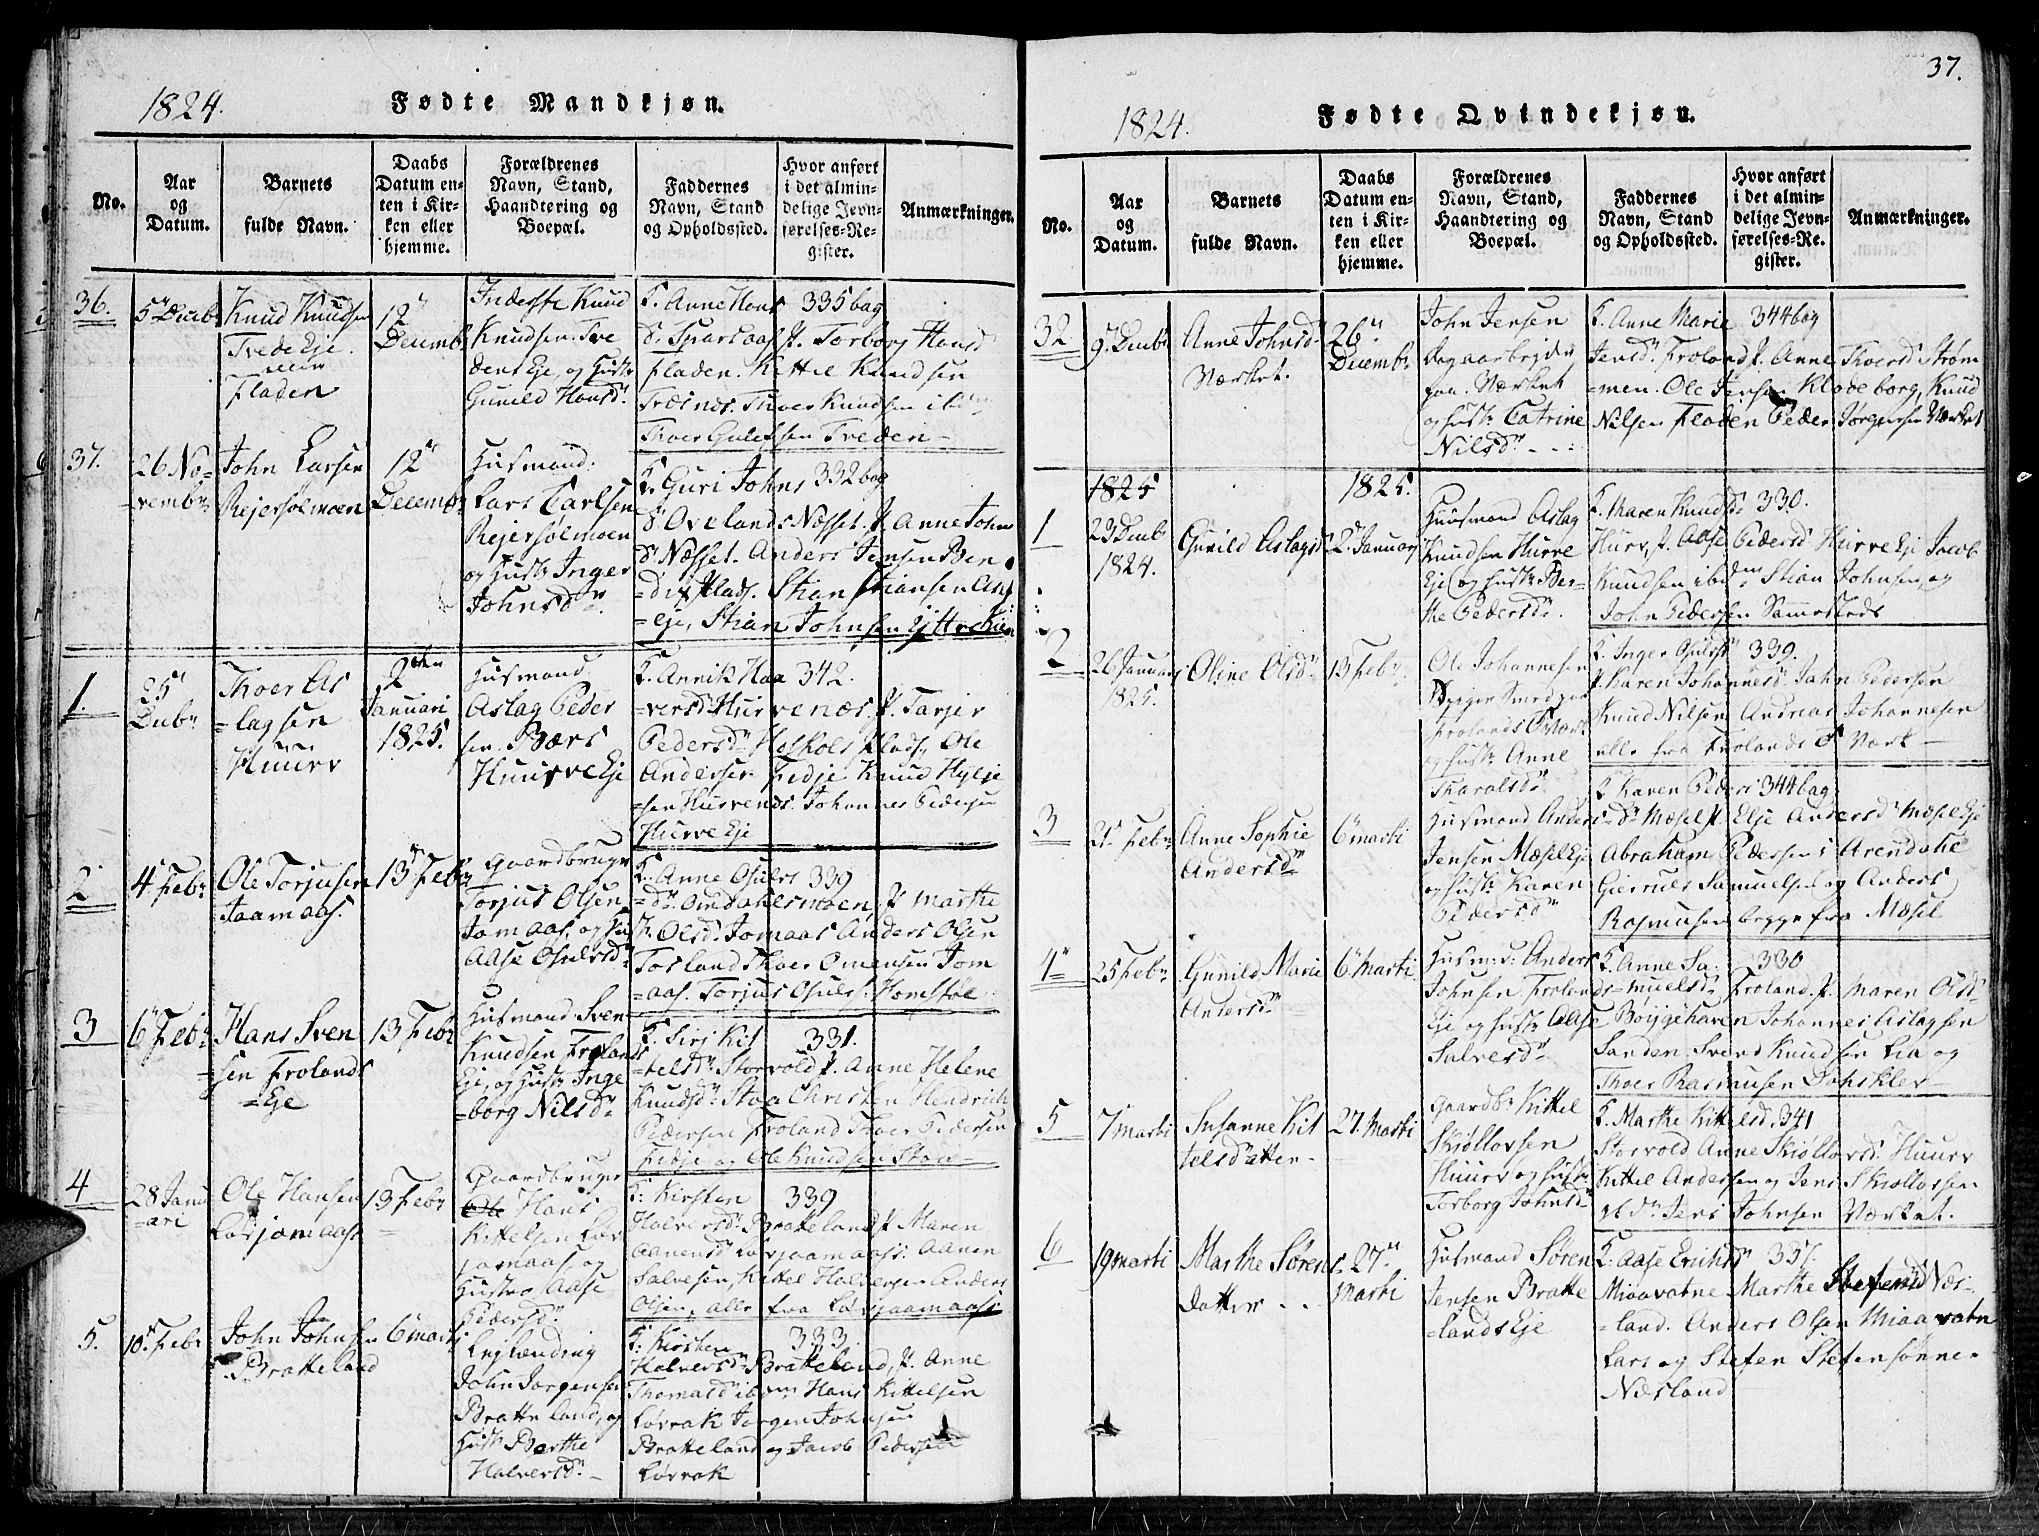 1824. Fødte Mandkjøn.
No.
Aar og Datum.
Barnets fulde Navn.
Daabs Datum enten i Kirken eller hjemme.
Forældrenes Navn, Stand, Haandtering og Boepæl.
Faddernes Navn, Stand og Opholdssted.
Hvor anført i det almindelige Jevnførelses-Register.
Anmærkninger.
36.
5 Decbr
Knud Knudsen
Tvede Eje
Fladen
12
Decemb.
Inderste Knud
Knudsen Tve
dens Eje, og Hustr
Gunild Hansd.
F. Anne Hans 335 bag
Fladen. Kittel Knudsen
Træsnes. Thoer Knudsen ibdm
Thoer Gulefsen Tveden
37.
26 No
vembr
John Larsen
Rejersølmoen
12
Decembr
Husmand
Lars Carlsen
Rejersølmoen
og Hustr Inger
Johnsdr
F. Guri Johns 332 bag
d. Ovelands Næsset. J. Anne John
d. Næsset. Anders Jensen Ben
=dix Plads. Stian Stiansen
=eje, Stian Johnsen
1.
25
Decbr
Thoer As
=lagsen
Huurv
2den
Januari
1825.
Husmand
Aslag Peder
sen. Børs
Huurve Eje
F. Anrik Haa 342.
versd. Hurvenæs, J. Tarjer
Pedersd. Heskols Plads, Ole
Andersen Fedje Knud Hylje
=sen Hurvenes. Johannes Pedersen
Hurve Eje
2
4 Febr.
Ole Torjusen
Jaamaas.
13 Febr
Gaardbruger
Torjus Olsen
Jomaas, og Hu
Aase Osulvsd.
F. Anne Osuls 339
J. Marthe
Olsd. Jomaas Anders Olsen
Torland Thoer Omensen Jom
aas. Torjus Osuls. Homstøl
3
6 Febr
Hans Sven
=sen Frolands
=Eje
13 Febr
Husmand Sven
Knudsen Frolands
Eje, og Hustr Inge
=borg Nilsd.
F. Sirj Kit 331.
=telsd. Storvold J. Anne Helene
Knudsd. Stoa Christen Hendrich
Pedersen Froland Thoer Pedersen
Fedje og Ole Knudsen Stoe
4
28 Janu
=ari
Ole Hansen
Løvjomaas
13 Febr
Gaardbruger
Ole Hans
Kittelsen Løv
jomaas og
Hustro Aase
Pedersd.
F: Kirsten 339
Halversd. Bratteland J. Maren
Aanensd. Løvjaamaas: Aanen
Salvesen, Kittel Halversen Anders
Olsen, alle fra Løvjaamaas:
5.
10 Febr
John Johnsen
Bratteland
6 Marti
John Jørgensen
Bratteland, og
Hust. Berthe
Halversd.
F: Kirsten 333.
Halversd. Bratteland, J. Anne
Thomasd. ibdm Hans Kittelsen
Løvrak Jørgen Johnsen
Bratteland og Jacob Pedersen
Løvrak
37.
1824. Fødte Qvindekjøn.
No.
Aar og Datum.
Barnets fulde Navn.
Daabs Datum enten i Kirken eller hjemme.
Forældrenes Navn, Stand, Haandtering og Boepæl.
Faddernes Navn, Stand og Opholdssted.
Hvor anført i det almindelige Jevnførelses-Register.
Anmærkninger.
32
9 Decbr
Anne Johnsd
Værket.
26
Decembr
John Jensen
Dagarbejder
paa Værket
og Hustr Catrine
Nilsd.
F. Anne Marie 344 bag
Jensd. Froland J. Anne Thoersd Strøm
=men. Ole Jensen Kloveborg, Knud
Nilsen Fladen Peder Jørgensen Værket
1825
1825.
1
23 Decbr
1824.
Gunild Aslagsd
2 Januar
Huusmand Aslag
Knudsen Hurve
Eje og Hustr Ber-
the Pedersd.
F. Maren Knudsd. 330.
Hurv, J. Aase Pedersd. Hurve Eje Jacob
Knudsen ibidem Stian Johnsen, og
John Pedersen Sammesteds
2
26 Januar
1825.
Oline Olsd.
13 Febr.
Ole Johannesen
Frolands Værk
og Hustr Anne
Tharalsd.
F. Inger Osulsd 339.
J. Karen Johannesd. John Pedersen
Knud Nilsen Andreas Johannesen
alle fra Frolands Værk
3
21 Febr
Anne Sophie
Andersd.
6 Marti
Husmand Anders
Jensen Mæsel Eje
og Hustr Karen
Pedersd.
F. Karen Peders 344 bag
=d. Mæsel J. Elje Andersd. Mæsel Eje
Abraham Pedersen i Arendahl
Gjernæs Samuelsen og Anders
Rasmusen begge fra Mæsel
4
25 Febr
Gunild Marie
Andersd.
6 Marti
Husm: Anders
Johnsen Frolands
Eje og Hustr Aase
Salvesd.
F. Anne Sa- 330
=muelsd. Froland. J. Maren Olsd.
Boygehaven Johannes Aslagsen
Sanden Svend Knudsen Lia og
Thoer Rasmusen
5
7 Marti
Susanne Kit
telsdatter
27. Marti
Gaardb. Kittel
Skiøllovsen
Huurv og Hust.
Torborg Johnsd.
F. Marthe Kittelsd. 341
Storvold Anne Skiøllovsd. Huurv
Kittel Andersen og Jens Skiøllovsen
Jens Johnsen Værket.
6
19 Marti
Marthe Sørens
Datter
27
Marti
Husmand Søren
Jensen Bratte
=lands Eje
F. Aase Eriksd 337.
Miaavatne Marthe Stefensd Næs-
=land. Anders Olsen Miaavatn
Lars og Stefen Stefensønner
Næsland